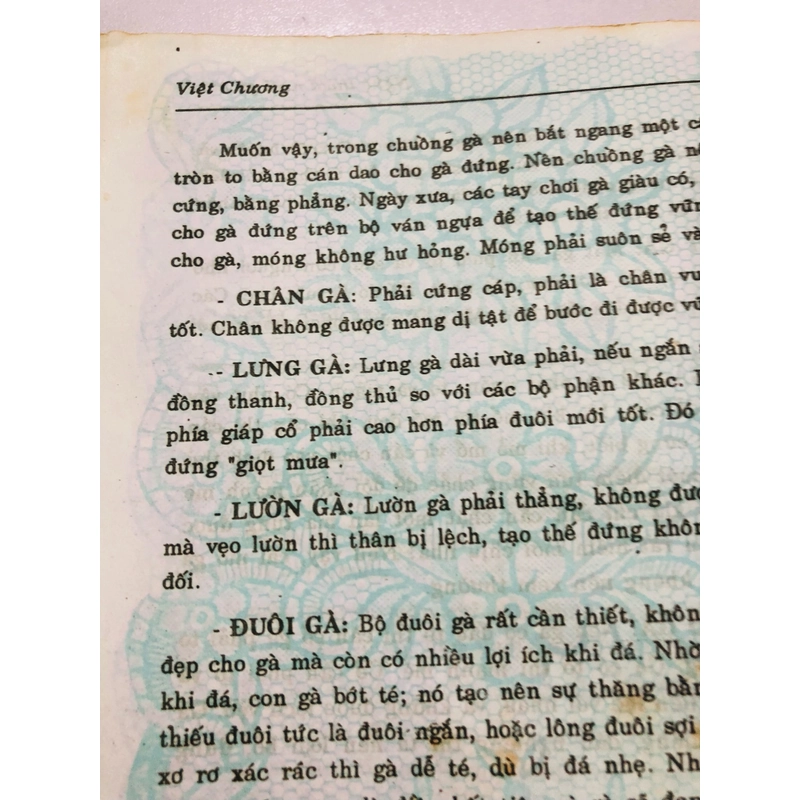 Việt Chương
Muốn vậy, trong chuồng gà nên bắt ngang một
tròn to bằng cán dao cho gà đứng. Nền chuồng gà
cứng, bằng phẳng. Ngày xưa, các tay chơi gà giàu có,
cho gà đứng trên bộ ván ngựa để tạo thế đứng
cho gà, móng không hư hỏng. Móng phải suôn sẻ
- CHÂN GÀ: Phải cứng cáp, phải là chân
tốt. Chân không được mang dị tật để bước đi được
- LƯNG GÀ: Lưng gà dài vừa phải, nếu ngắn
đồng thanh, đồng thủ so với các bộ phận khác.
phía giáp cổ phải cao hơn phía đuôi mới tốt. Đó
đứng "giọt mưa".
- LƯỜN GÀ: Lườn gà phải thẳng, không
mà vẹo lườn thì thân bị lệch, tạo thế đứng
đối.
- ĐUÔI GÀ: Bộ đuôi gà rất cần thiết,
đẹp cho gà mà còn có nhiều lợi ích khi đá. Nhờ
khi đá, con gà bớt té; nó tạo nên sự thăng
thiếu đuôi tức là đuôi ngắn, hoặc lông đuôi sợi
xơ rơ xác rác thì gà dễ té, dù bị đá nhẹ.